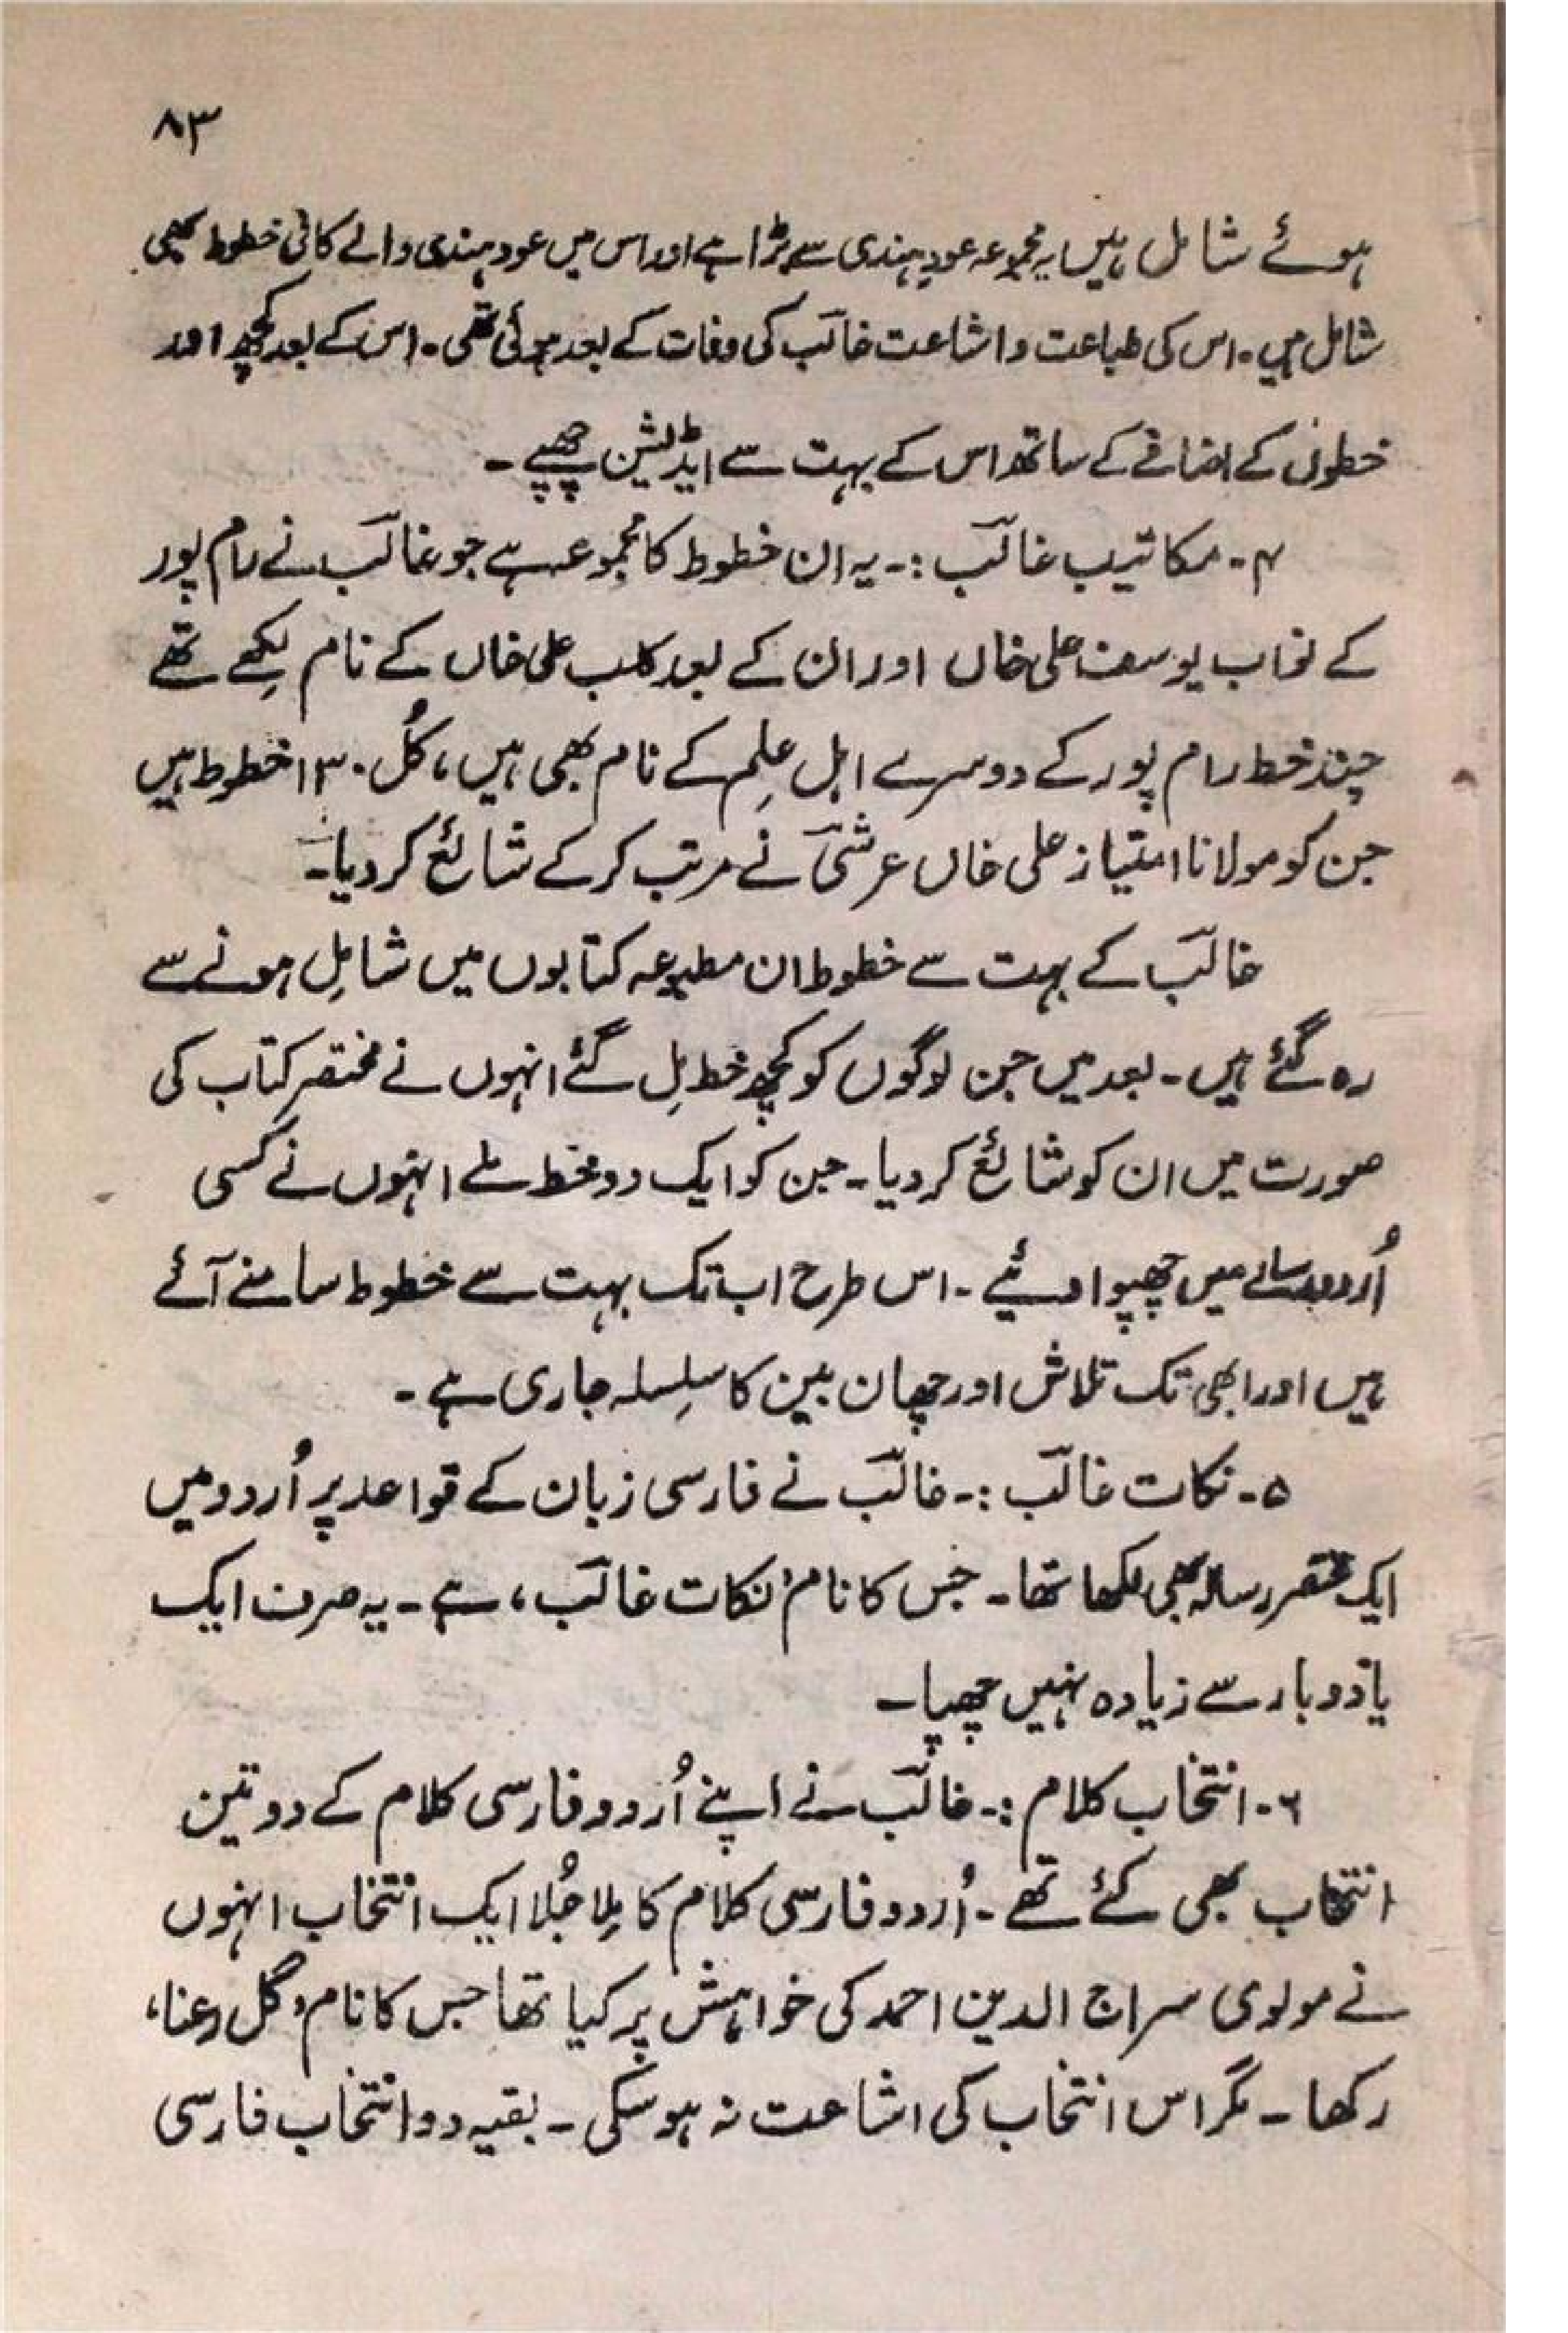 ۸۳
ہوئے شامل ہیں یہ مجموعہ عودِ ہندی سے بڑا ہے اور اس میں عود ہندی والے کافی خطوط بھی
شامل ہیں۔ اس کی طباعت و اشاعت غالبؔ کی وفات کے بعد ہوئی تھی۔ اس کے بعد کچھ اور
خطوں کے اضافے کے ساتھ اس کے بہت سے ایڈیشن چھپے۔
۴۔ مکاتیب غالبؔ :۔ یہ ان خطوط کا مجموعہ ہے جو غالبؔ نے رام پور
کے نواب یوسف علی خاں اور ان کے بعد کلب علی خاں کے نام لِکھے تھے
چند خط رام پور کے دوسرے اہل عِلم کے نام بھی ہیں، کُل ۱۳۰ خطوط ہیں
جن کو مولانا امتیاز علی خاں عرشیؔ نے مرتب کر کے شائع کر دیا۔
غالبؔ کے بہت سے خطوط ان مطبوعہ کتابوں میں شامِل ہونے سے
رہ گئے ہیں۔ بعد میں جن لوگوں کو کچھ خط مِل گئے انہوں نے مختصر کتاب کی
صورت میں ان کو شائع کر دیا۔ جن کو ایک دو خط ملے انہوں نے کسی
اُردو رسالے میں چھپوا دئیے۔ اس طرح اب تک بہت سے خطوط سامنے آئے
ہیں اور ابھی تک تلاش اور چھان بین کا سلِسلہ جاری ہے۔
۵۔ نکات غالبؔ :۔ غالبؔ نے فارسی زبان کے قواعد پر اُردو میں
ایک مختصر رسالہ بھی لکھا تھا۔ جس کا نام ‘نکات غالبؔ’ ہے۔ یہ صرف ایک
یا دو بار سے زیادہ نہیں چھپا۔
۶۔ انتخاب کلام :۔ غالبؔ نے اپنے اُردو فارسی کلام کے دو تین
انتخاب بھی کئے تھے۔ اُردو فارسی کلام کا مِلا جُلا ایک انتخاب انہوں
نے مولوی سراج الدین احمد کی خواہش پر کیا تھا جس کا نام ‘گل رعنا’
رکھا۔ مگر اس انتخاب کی اشاعت نہ ہو سکی۔ بقیہ دو انتخاب فارسی